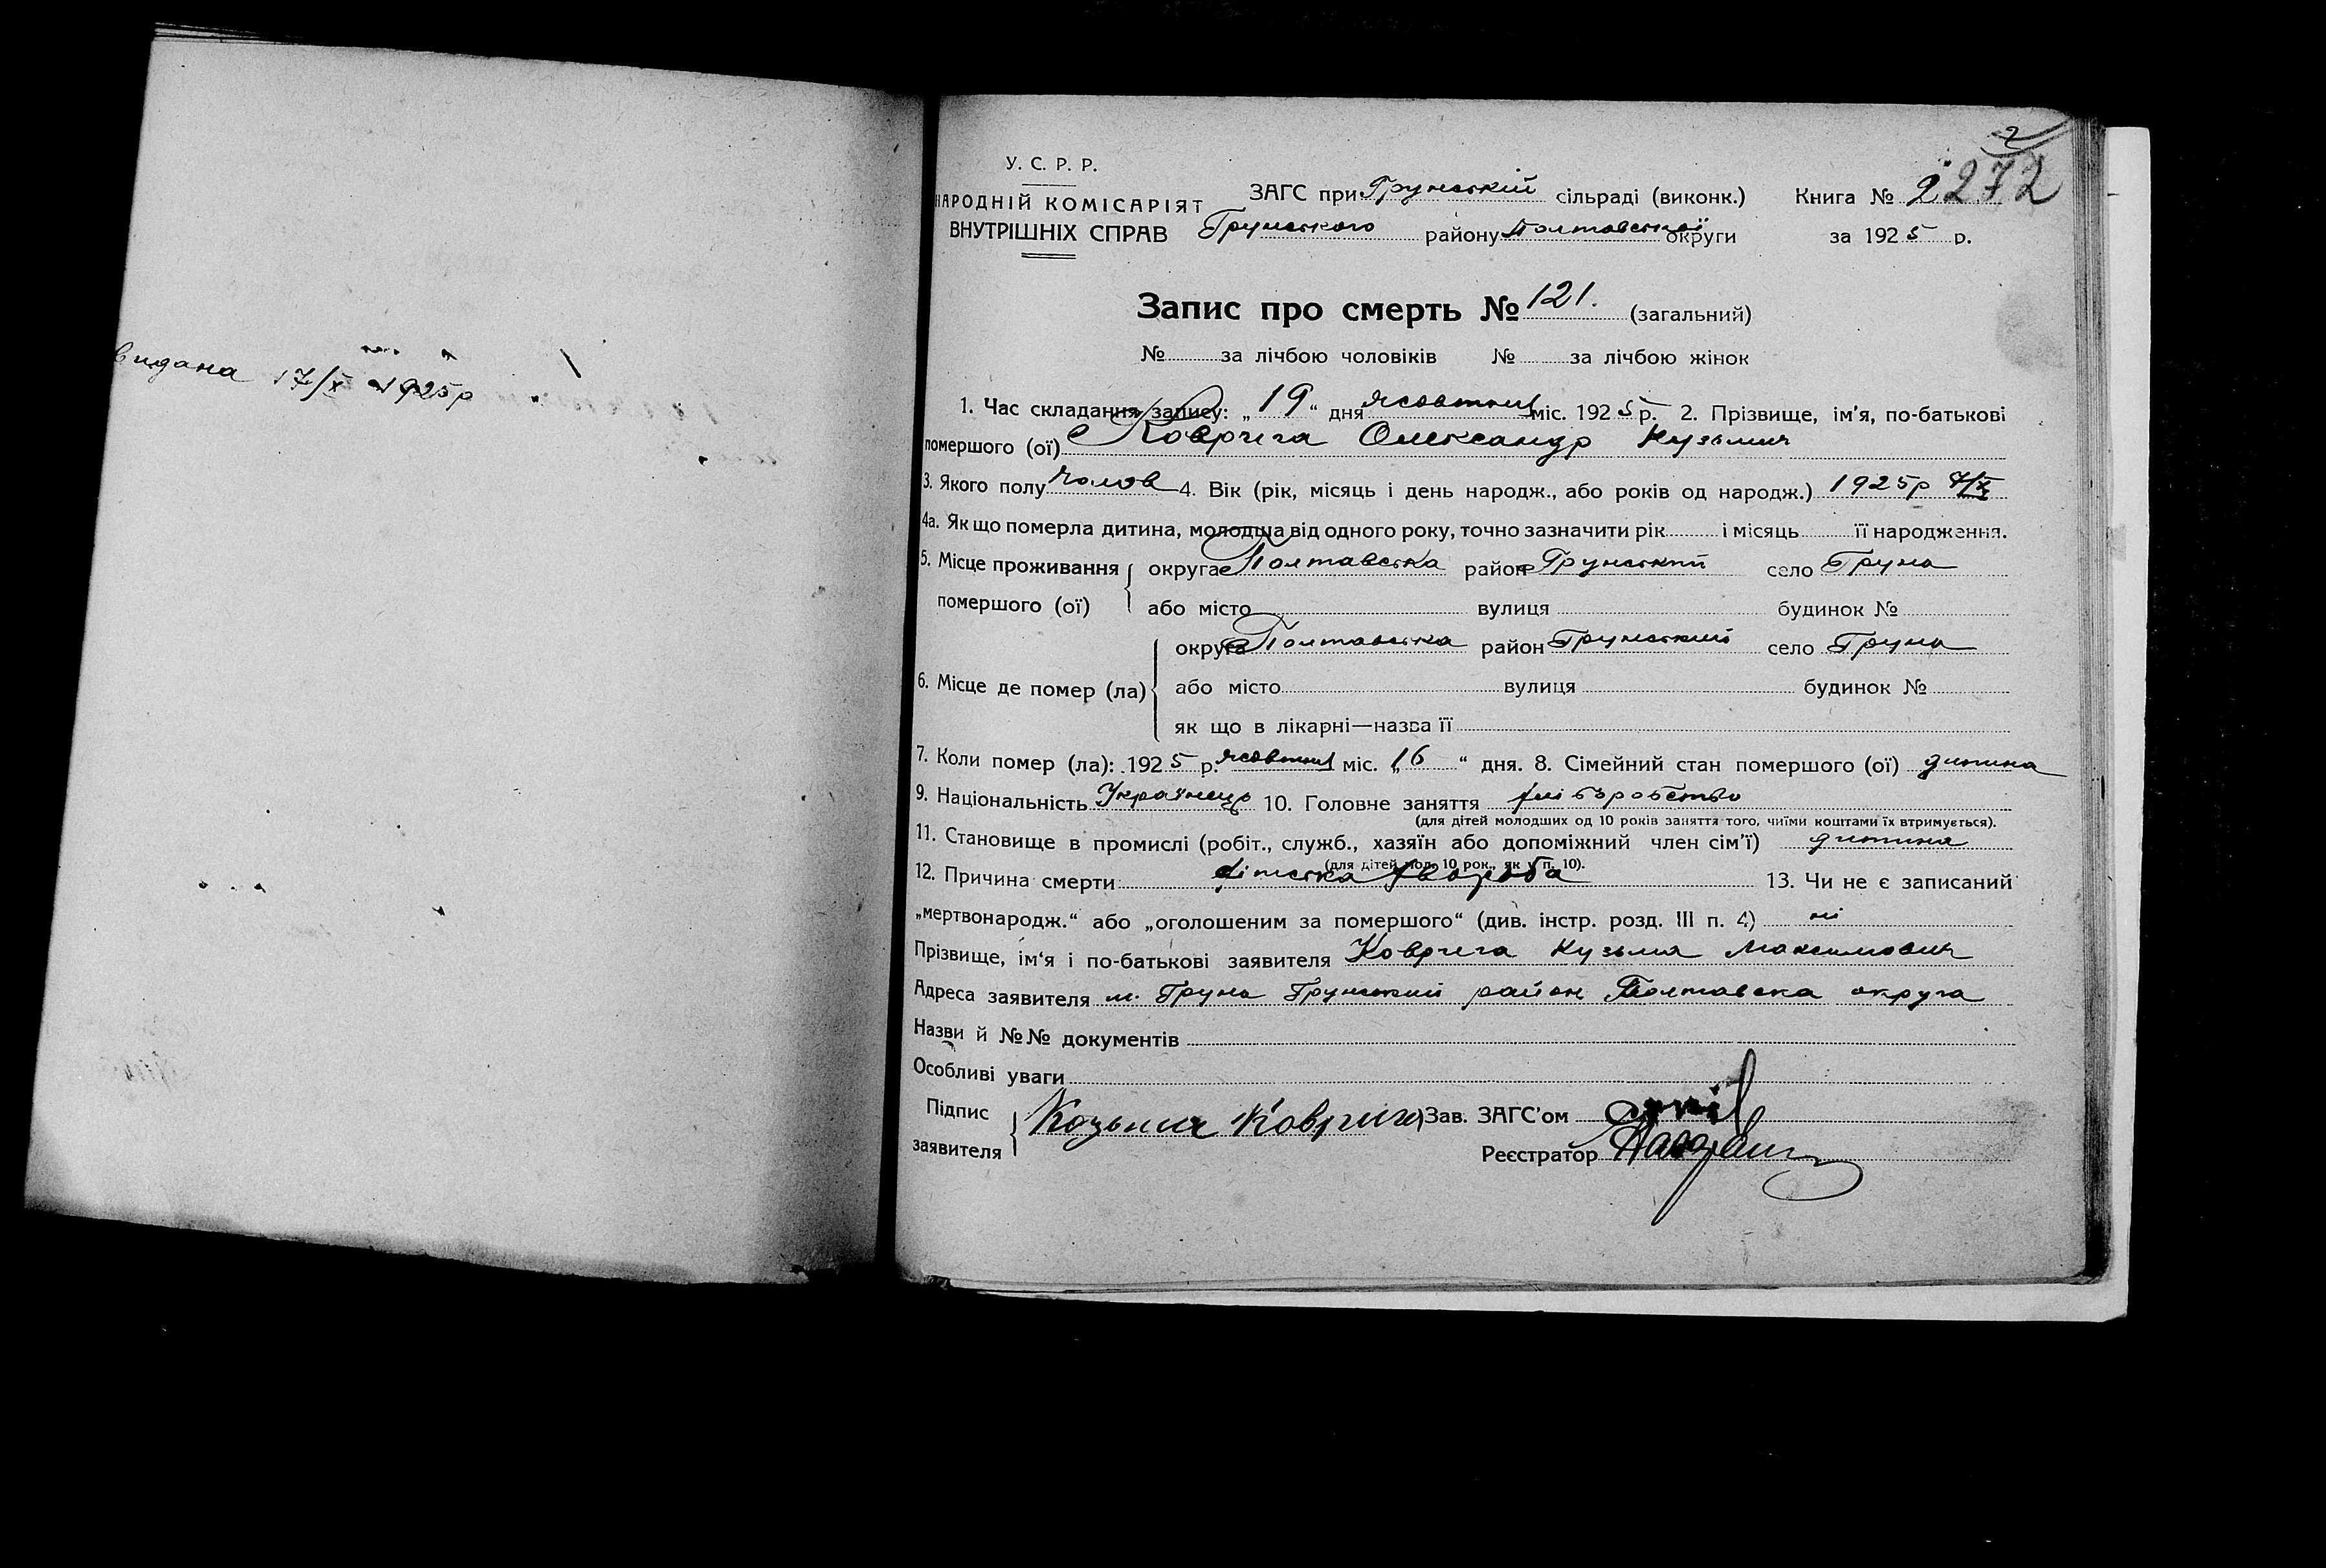 видана 17/X 1925р
2
272
У. С. Р. Р.
НАРОДНІЙ КОМІСАРІЯТ
ВНУТРІШНІХ СПРАВ
ЗАГС при Грунській сільраді (виконк.) Книга № 2
Грунського району Полтавської округи за 1925 р.
Запис про смерть № 121. (загальний)
№ за лічбою чоловіків № за лічбою жінок
1. Час складання запису: „19“ дня жовтня міс. 1925 р. 2. Прізвище, ім’я, по-батькові
помершого (ої) Коврига Олександр Кузьмич
3. Якого полу чолов 4. Вік (рік, місяць і день народж., або років од народж.) 1925р 7/X
4а. Як що померла дитина, молодша від одного року, точно зазначити рік і місяць її народження.
5. Місце проживання помершого (ої) { округа Полтавська район Грунський село Груно
або місто вулиця будинок №
6. Місце де помер (ла) { округа Полтавська район Грунський село Груно
або місто вулиця будинок №
як що в лікарні—назва її
7. Коли помер (ла): 1925 р. жовтня міс. „16“ дня. 8. Сімейний стан помершого (ої) дитина
9. Національність Українець 10. Головне заняття хліборобство
(для дітей молодших од 10 років заняття того, чиїми коштами їх втримується).
11. Становище в промислі (робіт., служб., хазяїн або допоміжний член сім’ї) дитина
(для дітей мол. 10 рок., як у п. 10).
12. Причина смерти дітська хвороба 13. Чи не є записаний
„мертвонародж.“ або „оголошеним за помершого“ (див. інстр. розд. III п. 4) ні
Прізвище, ім‘я і по-батькові заявителя Коврига Кузьма Максимович
Адреса заявителя м. Груно Грунський район Полтавска округа
Назви й №№ документів
Особливі уваги
Підпис заявителя { Козьма Коврига Зав. ЗАГС’ом
Реєстратор